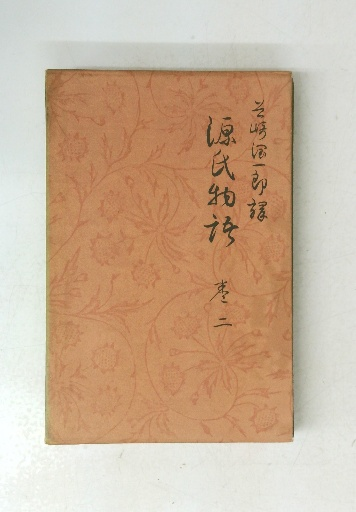 谷崎潤一郎譯
源氏物語
卷二